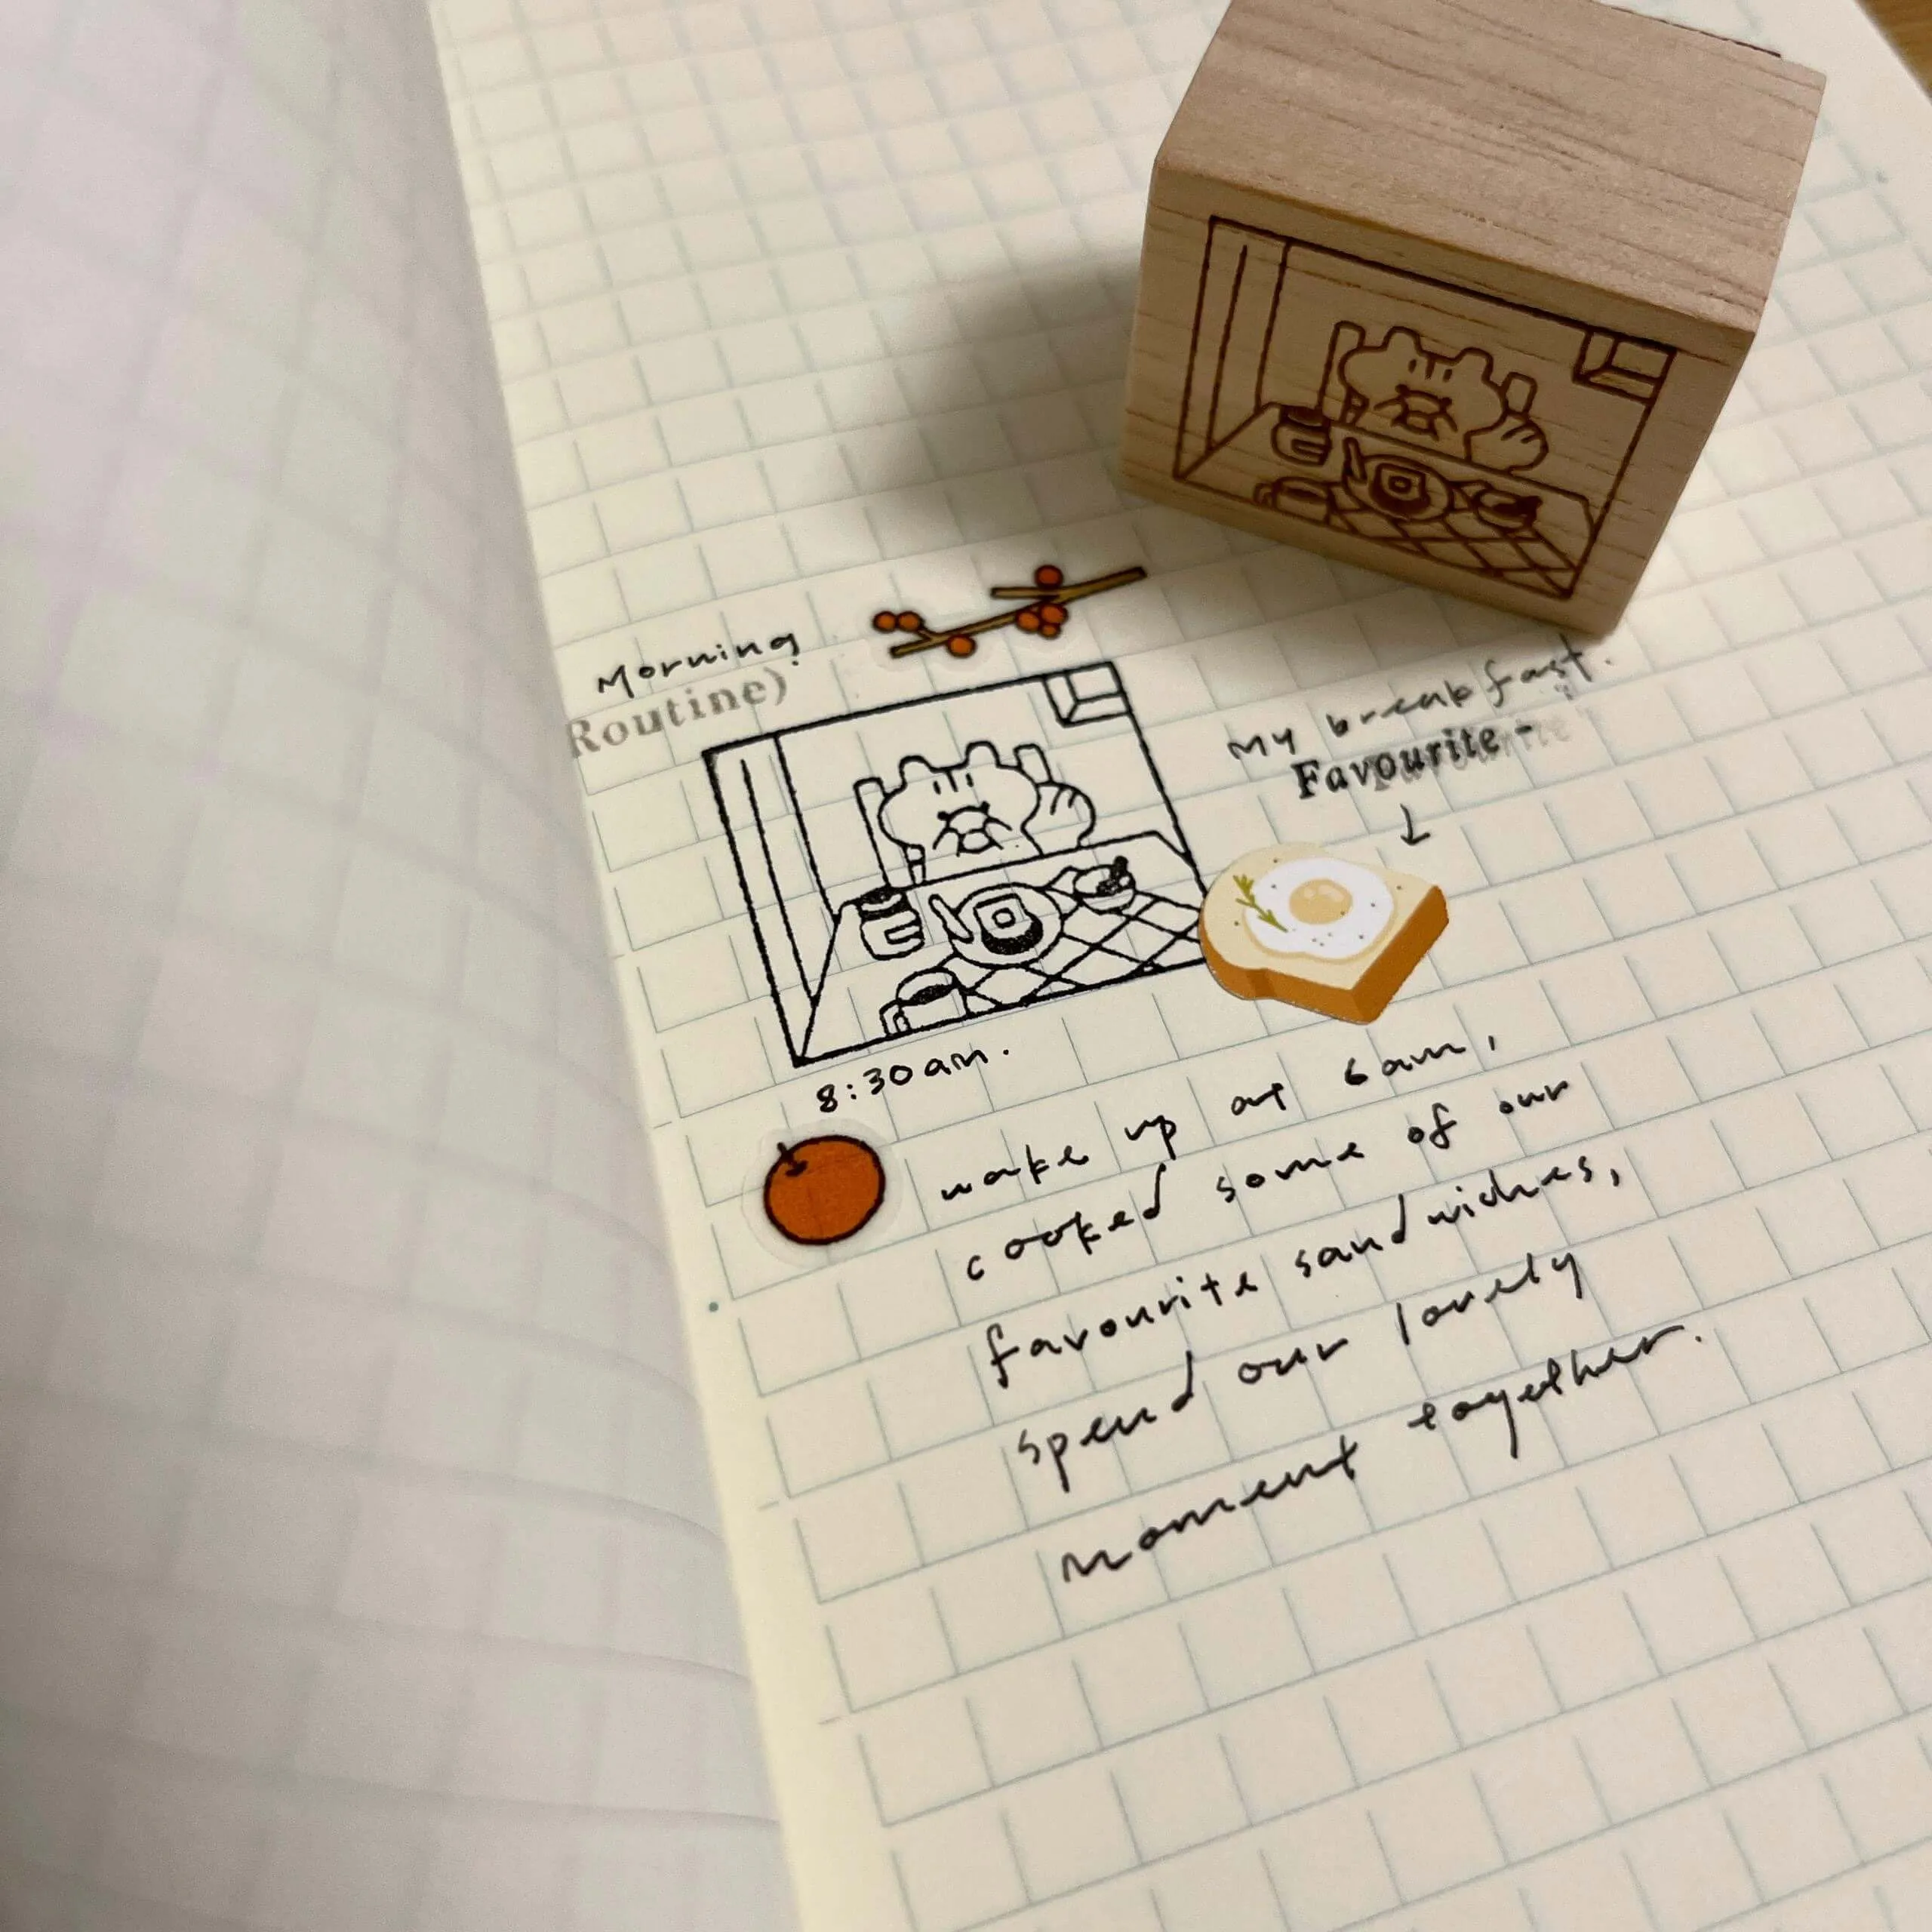 Morning
Routine)
My breakfast.
Favourite -
8:30am.
wake up at 6am,
cooked some of our
favourite sandwiches,
spend our lovely
moment together.